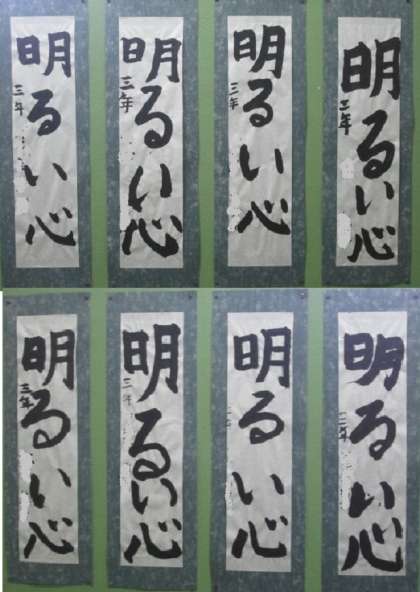 明るい心
三年
明るい心
三年
明るい心
三年
明るい心
三年
明るい心
三年
明るい心
三年
明るい心
明るい心
三年